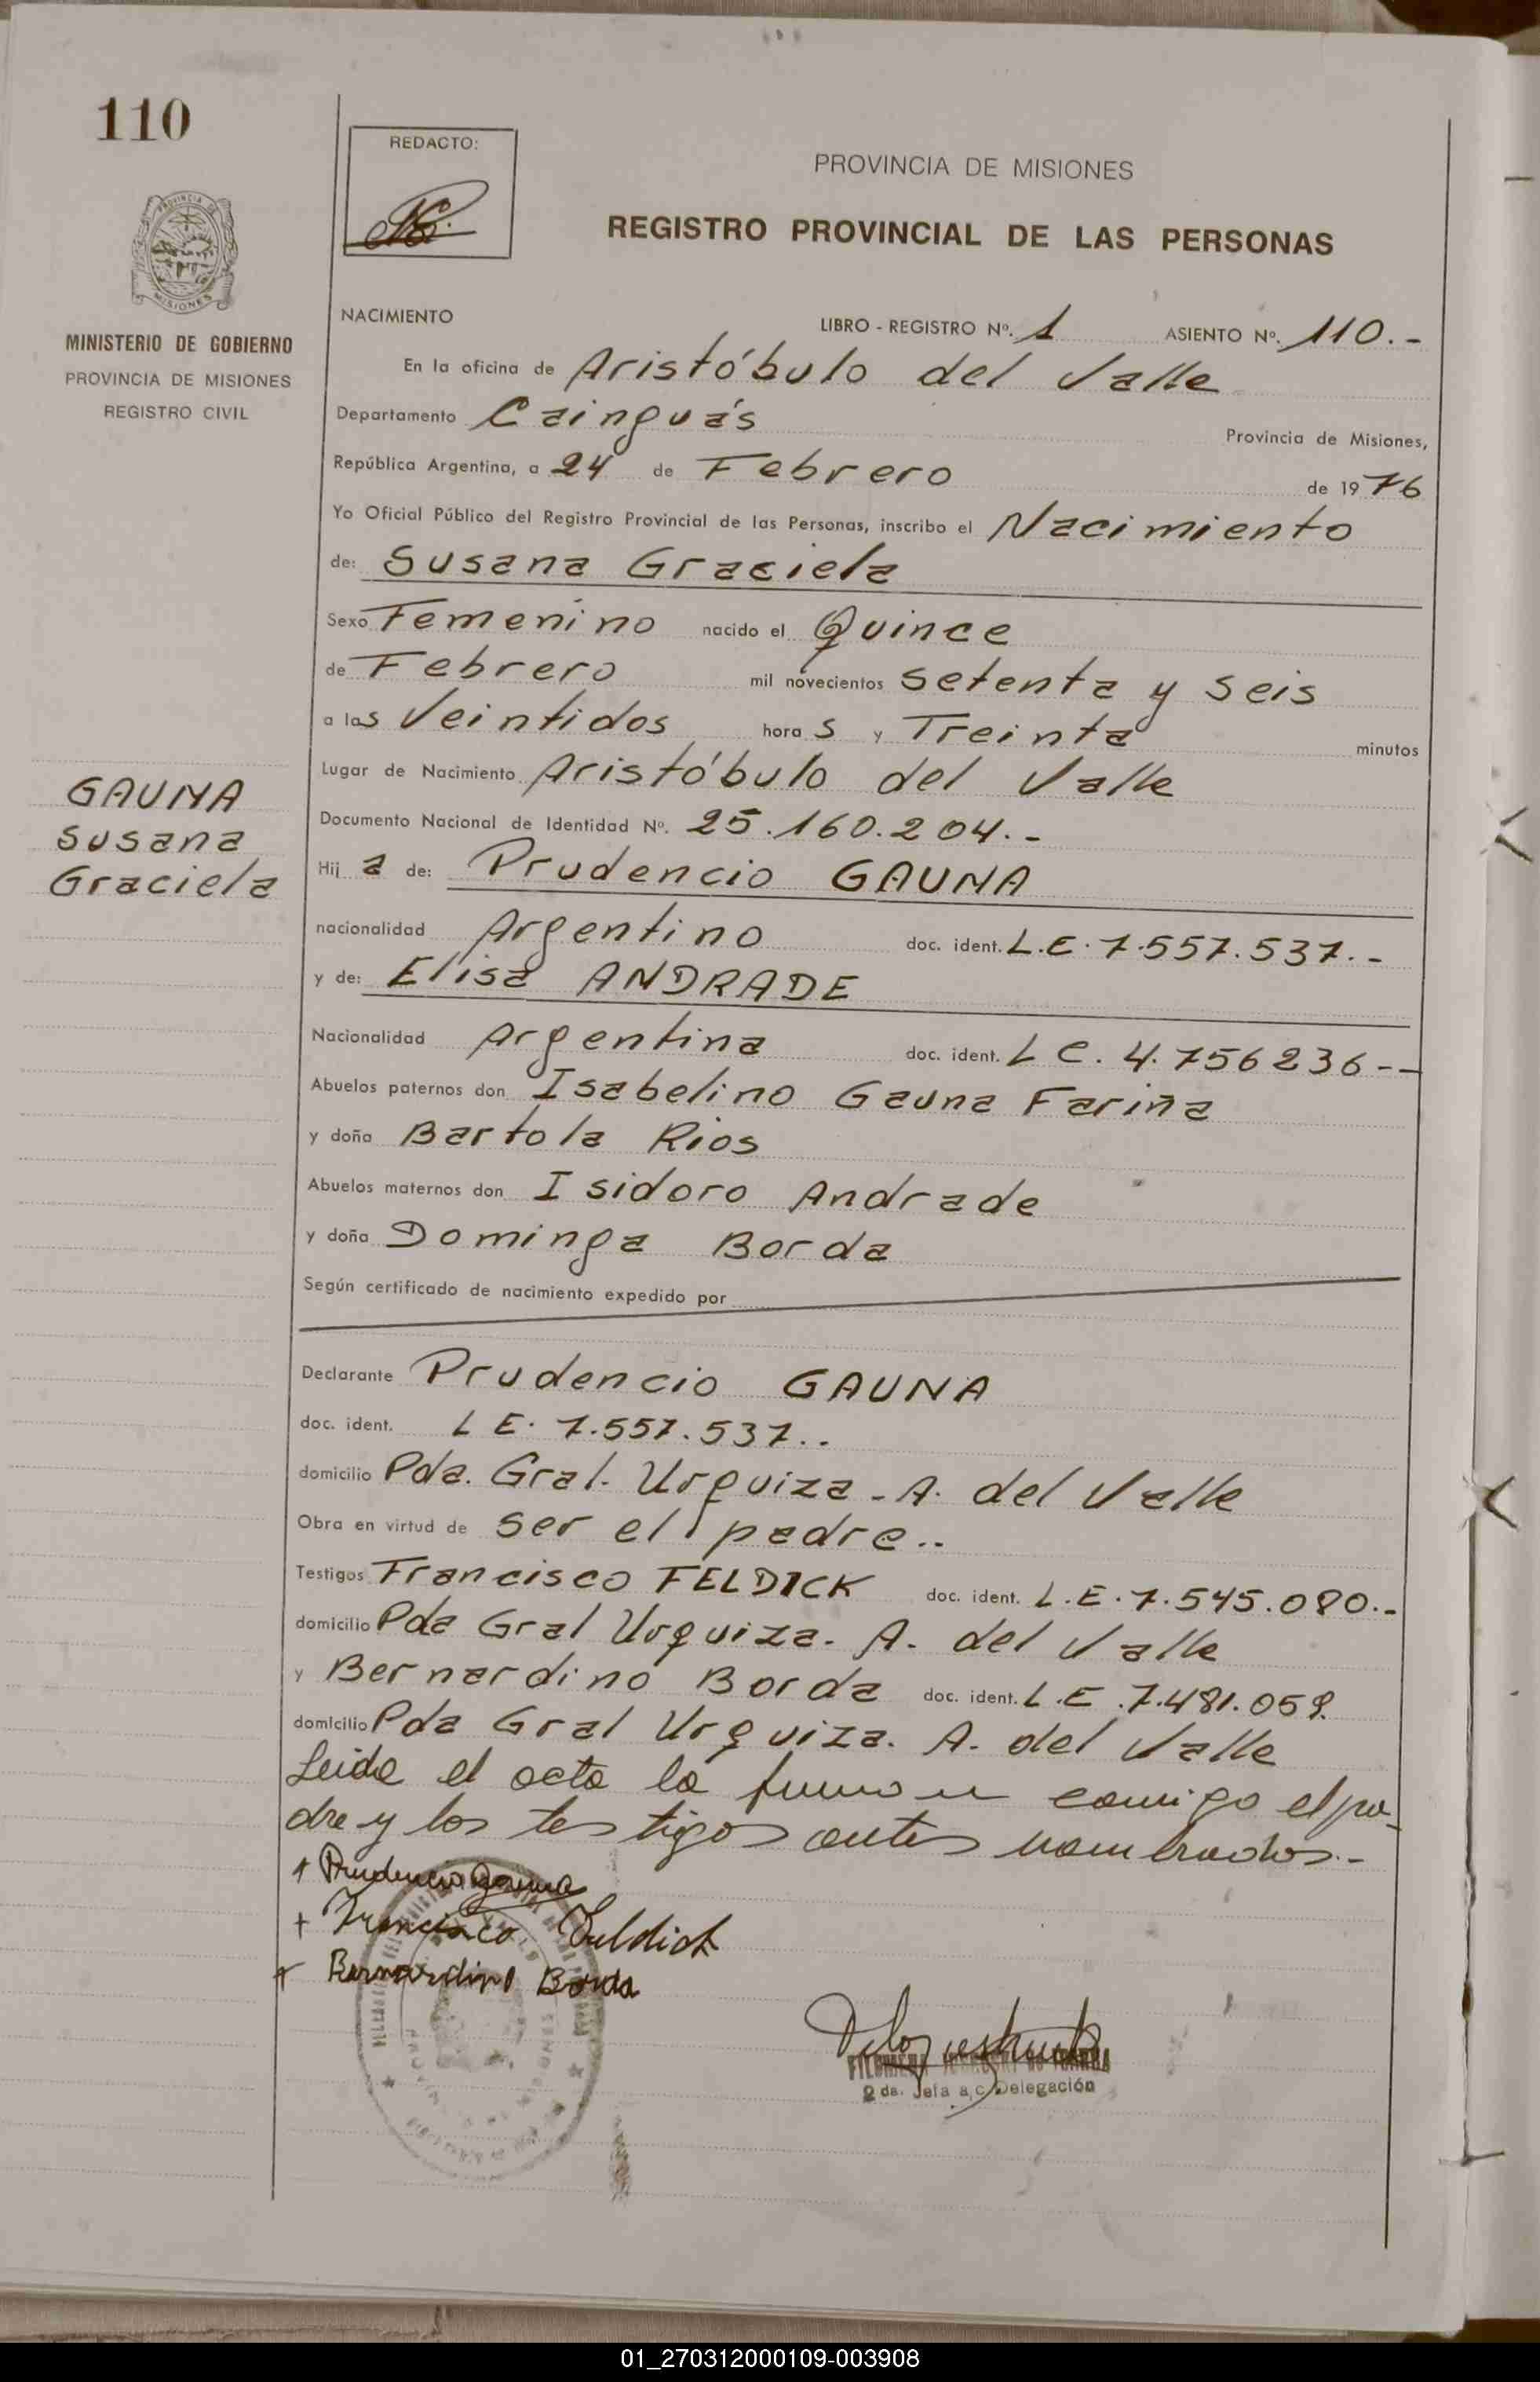 110
REDACTO:
PROVINCIA DE MISIONES
REGISTRO PROVINCIAL DE LAS PERSONAS
MISIONES
MINISTERIO DE GOBIERNO
PROVINCIA DE MISIONES
REGISTRO CIVIL
NACIMIENTO LIBRO - REGISTRO Nº. 1 ASIENTO Nº. 110.-
En la oficina de Aristóbulo del Valle
Departamento Cainguás Provincia de Misiones,
República Argentina, a 24 de Febrero de 1976
Yo Oficial Público del Registro Provincial de las Personas, inscribo el Nacimiento
de: Susana Graciela
Sexo Femenino nacido el Quince
de Febrero mil novecientos setenta y seis
a las Veintidos horas y Treinta minutos
Lugar de Nacimiento Aristóbulo del Valle
GAUNA
Susana
Graciela
Documento Nacional de Identidad Nº. 25.160.204.-
Hija de: Prudencio GAUNA
nacionalidad Argentino doc. ident. L.E. 7.557.537.-
y de: Elisa ANDRADE
Nacionalidad Argentina doc. ident. L C. 4.756236--
Abuelos paternos don Isabelino Gauna Fariña
y doña Bartola Rios
Abuelos maternos don Isidoro Andrade
y doña Dominga Borda
Según certificado de nacimiento expedido por
Declarante Prudencio GAUNA
doc. ident. L E. 7.557.537..
domicilio Pda. Gral. Urquiza - A. del Valle
Obra en virtud de ser el padre..
Testigos Francisco FELDICK doc. ident. L.E. 7.545.080.-
domicilio Pda Gral Urquiza. A. del Valle
y Bernardino Borda doc. ident. L.E. 7.481.059.
domicilio Pda Gral Urquiza. A. del Valle
Leida el acta la firman conmigo el pa-
dre y los testigos antes nombrados.-
Prudencio Gauna
Francisco Feldick
Bernardino Borda
2 da. Jefa a/c Delegación
01_270312000109-003908